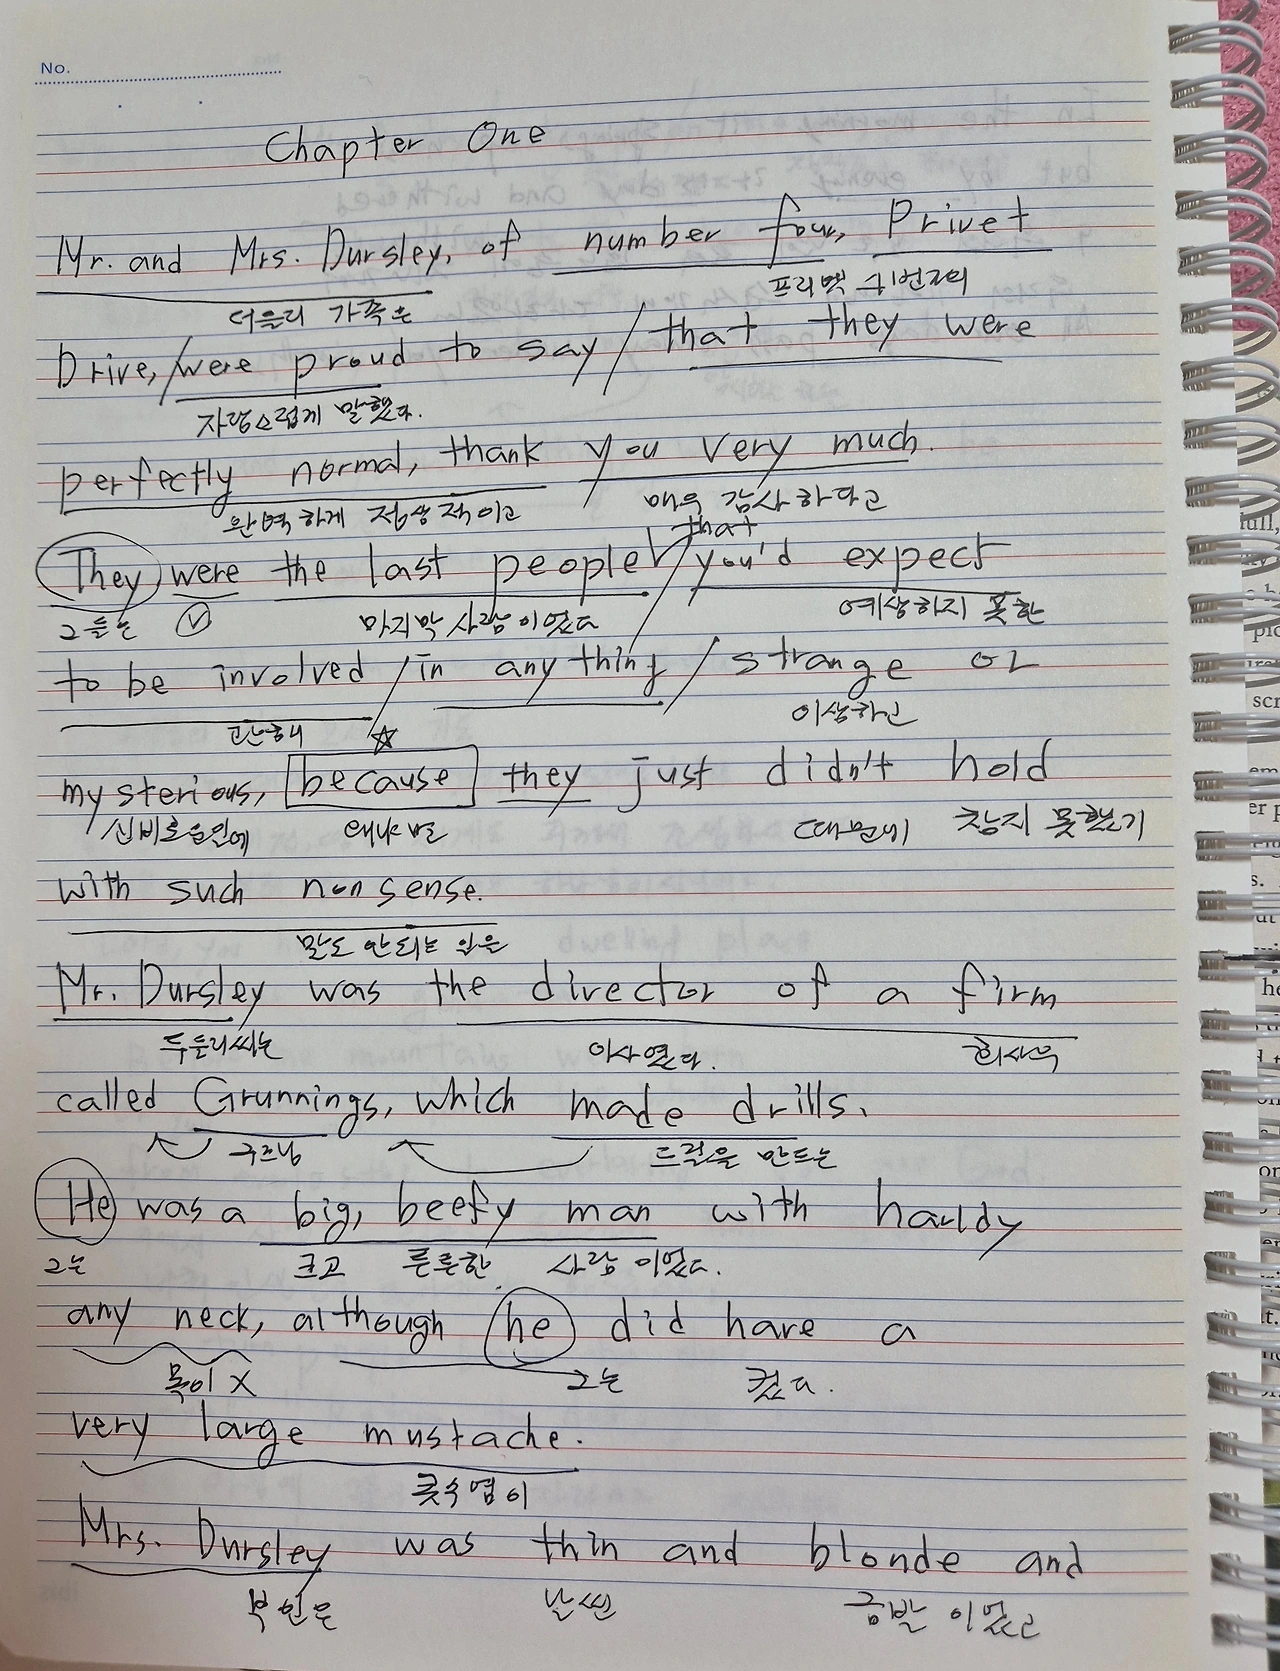 No.
Chapter One
Mr. and Mrs. Dursley, of number four, Privet
더즐리 가족은 프리벳 4번지의
Drive, were proud to say that they were
자랑스럽게 말했다.
perfectly normal, thank you very much.
완벽하게 정상적이고 매우 감사하다고
that
They were the last people you'd expect
그들은 마지막 사람이었다 예상하지 못한
to be involved in anything strange or
관한해 이상하고
mysterious, because they just didn't hold
신비로움인에 왜냐면 때문에 참지 못했기
with such nonsense.
말도 안되는 일은
Mr. Dursley was the director of a firm
두들리씨는 이사였다. 회사의
called Grunnings, which made drills.
드릴을 만드는
He was a big, beefy man with hardy
그는 크고 튼튼한 사람 이었다.
any neck, although he did have a
목이 X 그는 컸다.
very large mustache.
콧수염이
Mrs. Dursley was thin and blonde and
부인은 날씬 금발 이었고